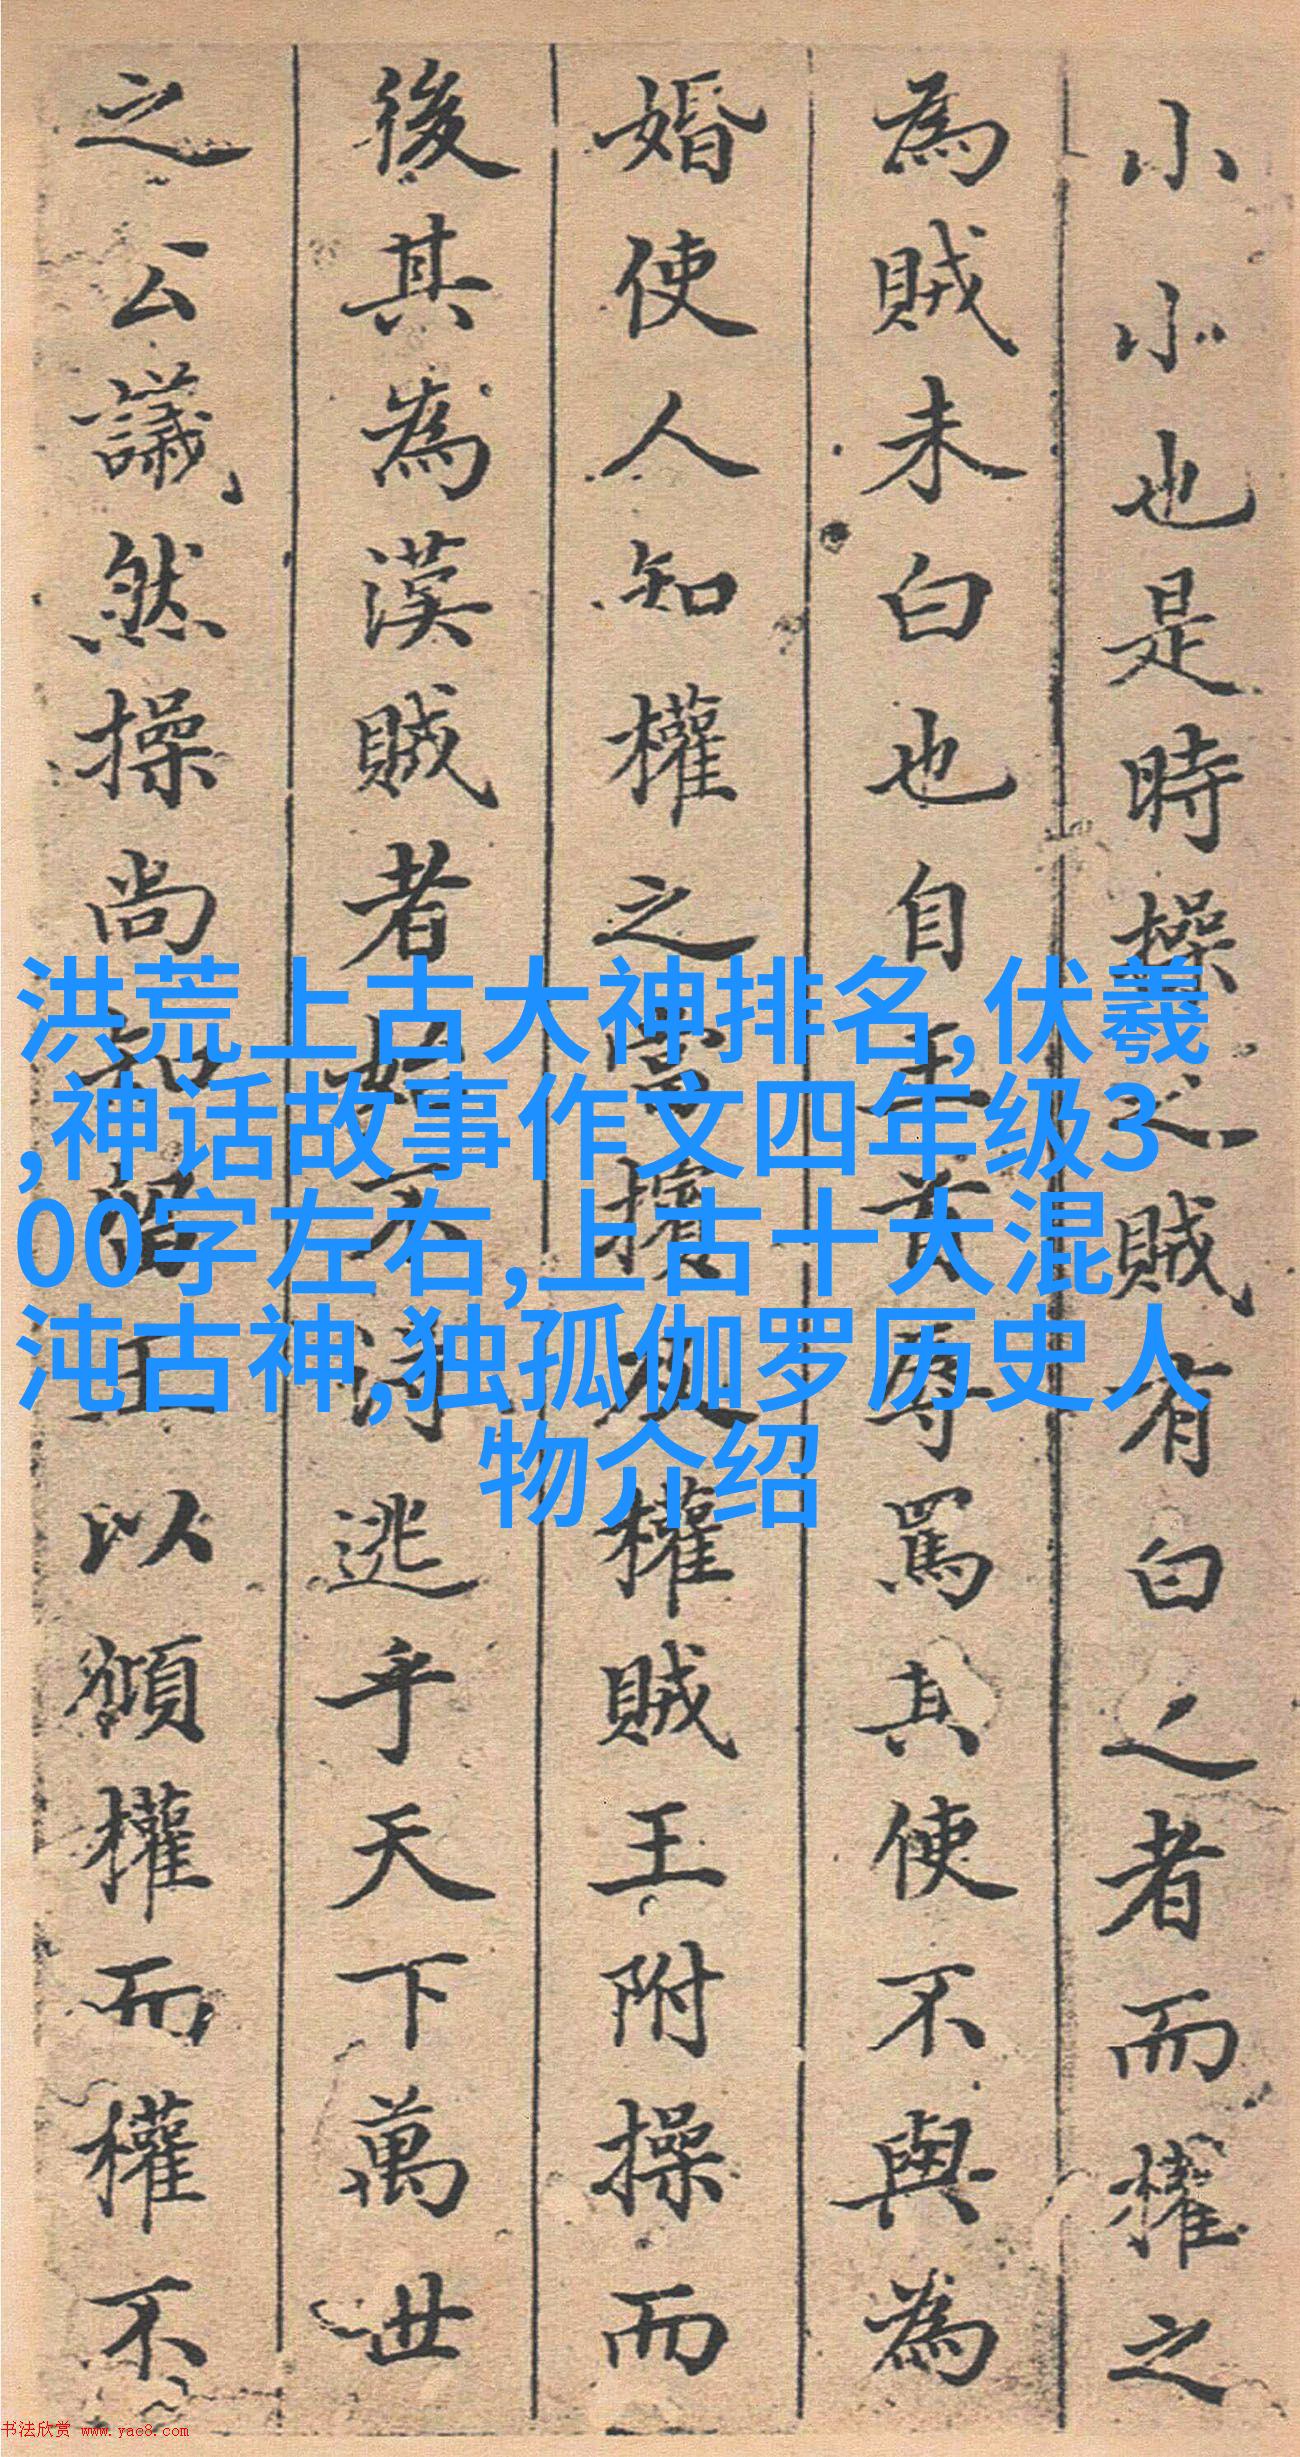 小小也是時操之賊有白之者而權之
為賊未白也自王肯辱罵其使不與為
婚使人知權之為擯及權賊王附操而
後其為漢賊者始不得逃乎天下萬世
之公議然操尚知留王以順權而權不
洪荒上古大神排名,伏羲
,神话故事作文四年级3
00字左右,上古十大混
沌古神,独孤伽罗历史人
物介绍
书法欣赏 www.yac8.com